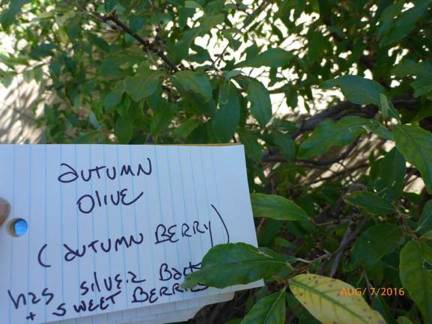 AUTUMN
OLIVE
(AUTUMN BERRY)
HAS SILVER Back
+ SWEET BERRIES
AUG/ 7/2016